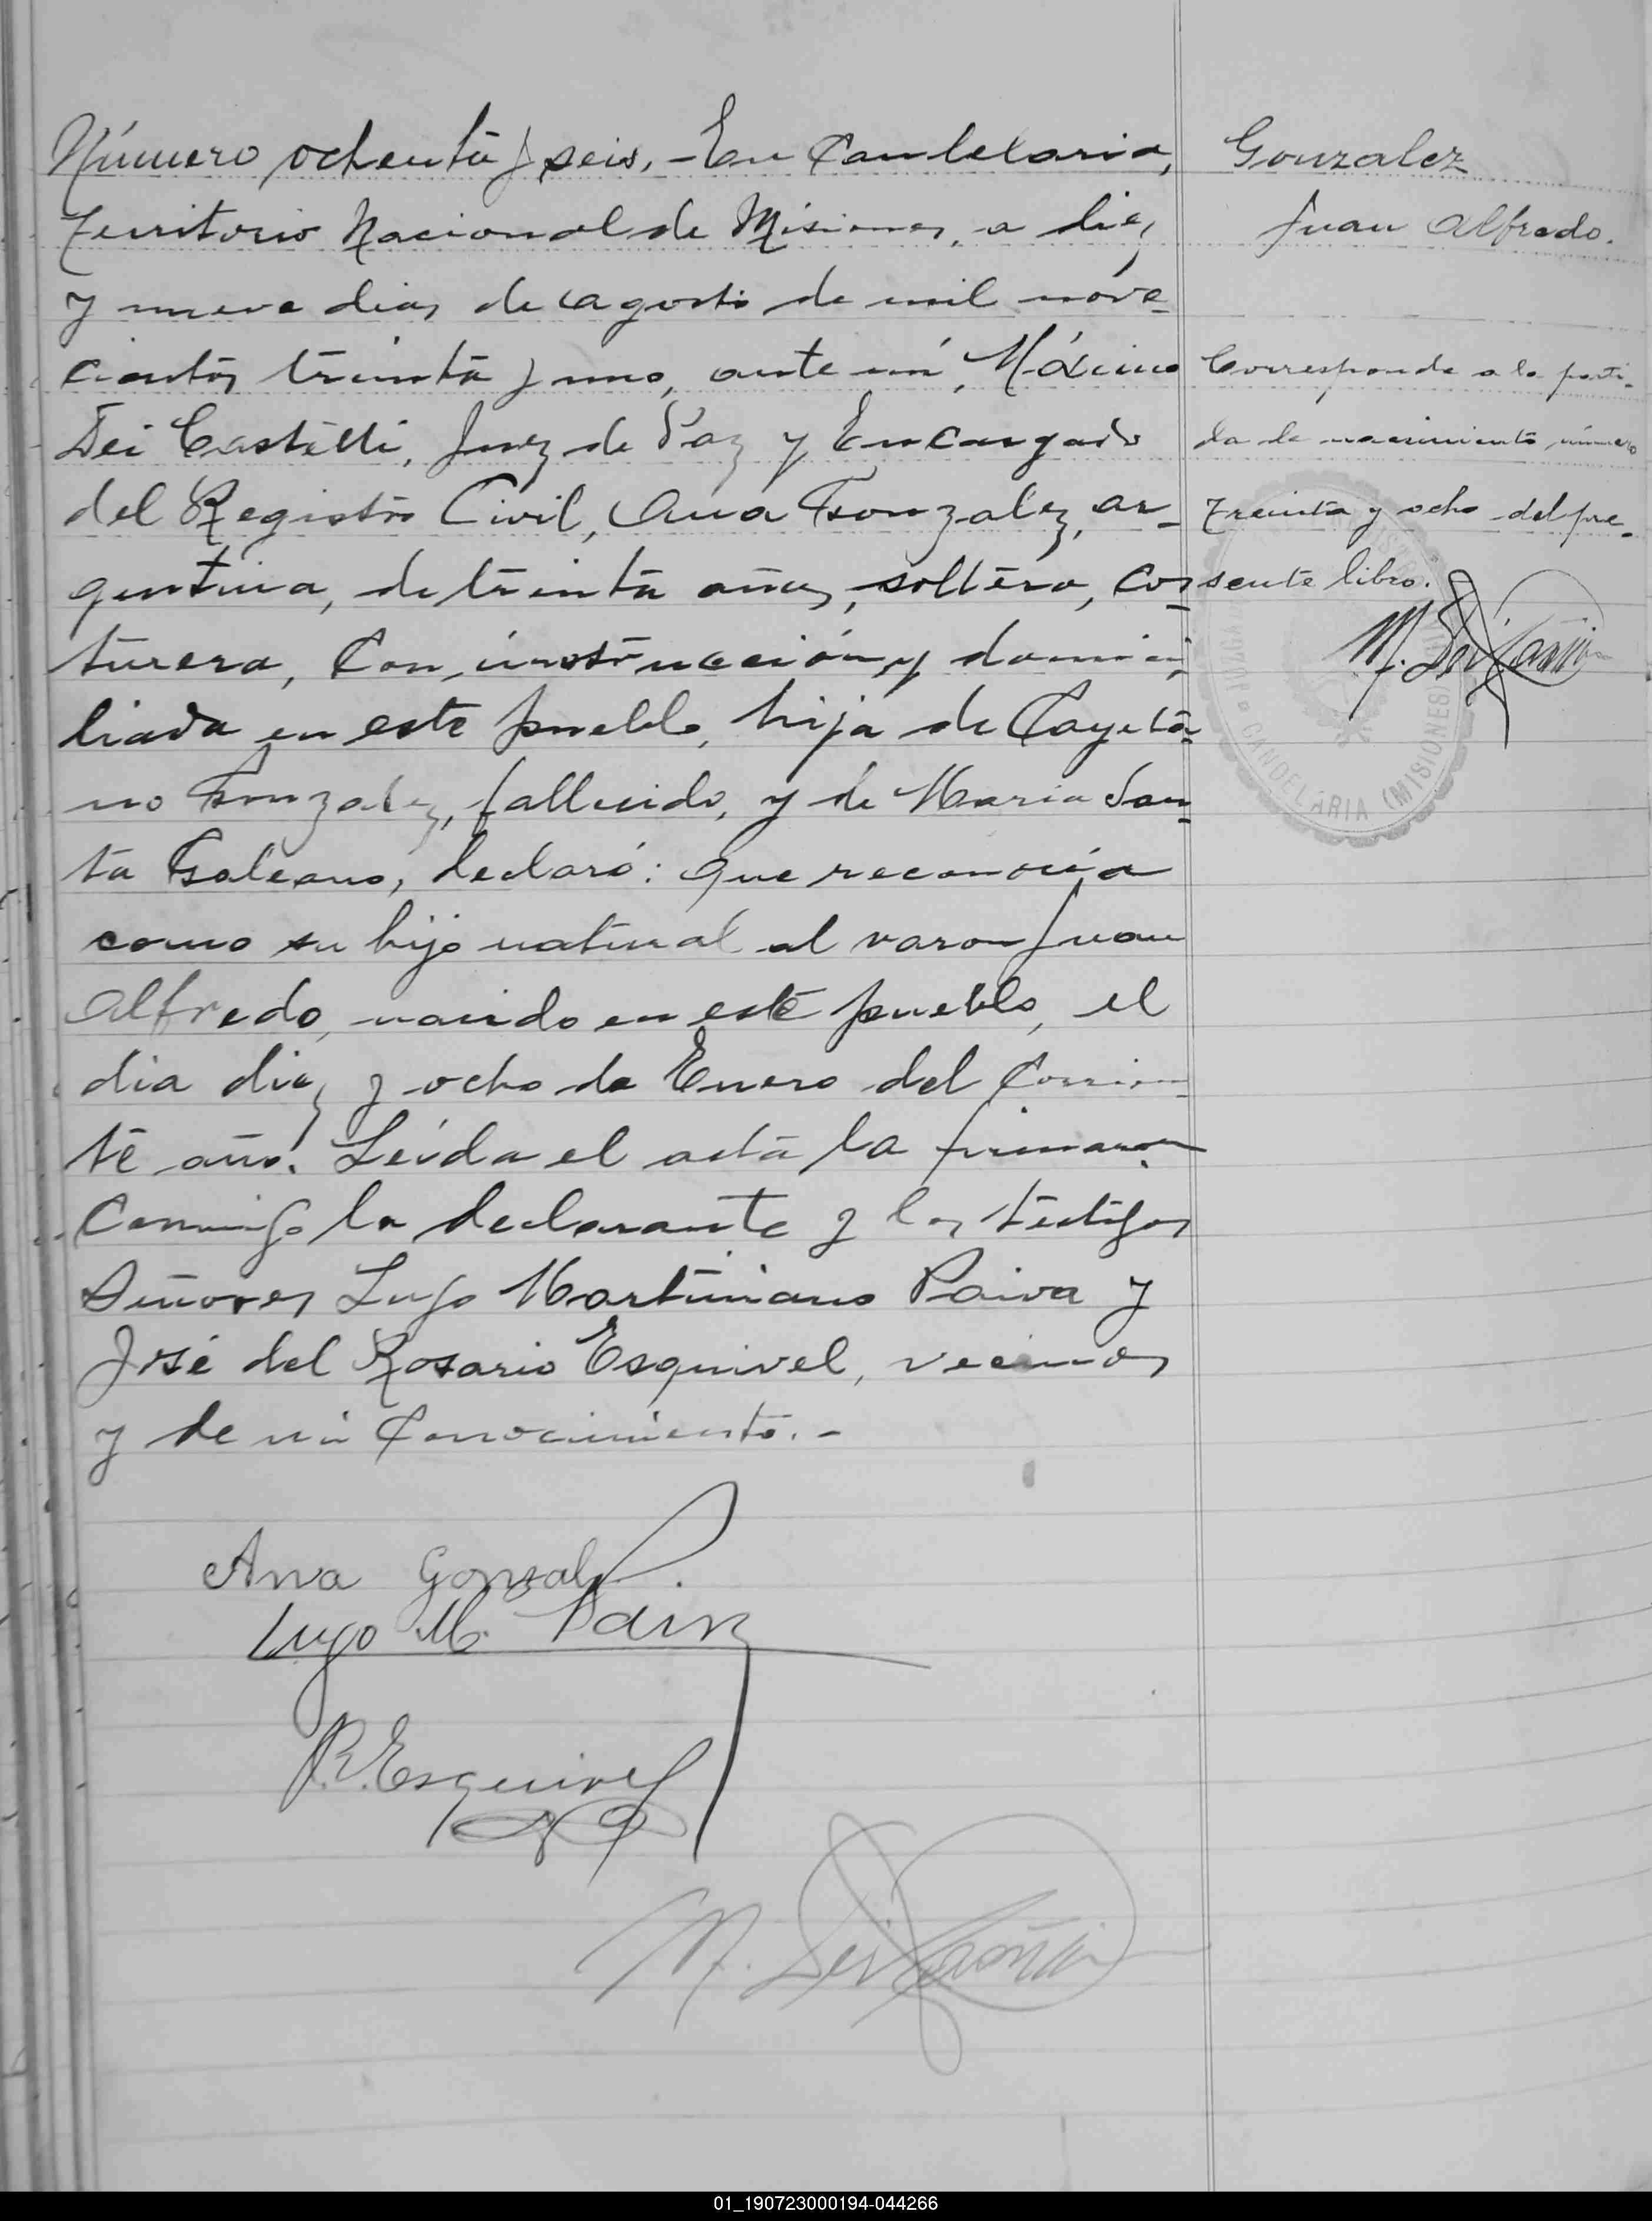 Número ochenta y seis. - En Candelaria,
Territorio Nacional de Misiones, a diez
y nueve dias de agosto de mil nove-
cientos treinta y uno, ante mí, Máximo
Dei Castelli, Juez de Paz y Encargado
del Registro Civil, Ana Gonzalez, ar-
gentina, de treinta años, soltera, cos-
turera, con instrucción y domici-
liada en este pueblo, hija de Cayeta-
no Gonzalez, fallecido, y de Maria San-
ta Galeano, declaró: Que reconocía
como su hijo natural al varon Juan
Alfredo, nacido en este pueblo, el
dia diez y ocho de Enero del corrien-
te año. Leída el acta la firmaron
conmigo la declarante y los testigos
Señores Lugo Martiniano Paiva y
José del Rosario Esquivel, vecinos
y de mi conocimiento. -
Ana Gonzalez.
Lugo M. Paiva
R. Esquivel
M. Dei Castelli
Gonzalez
Juan Alfredo.
Corresponde a la parti-
da de nacimiento número
treinta y ocho del pre-
sente libro.
M. Dei Castelli
CANDELARIA (MISIONES)
01_190723000194-044266